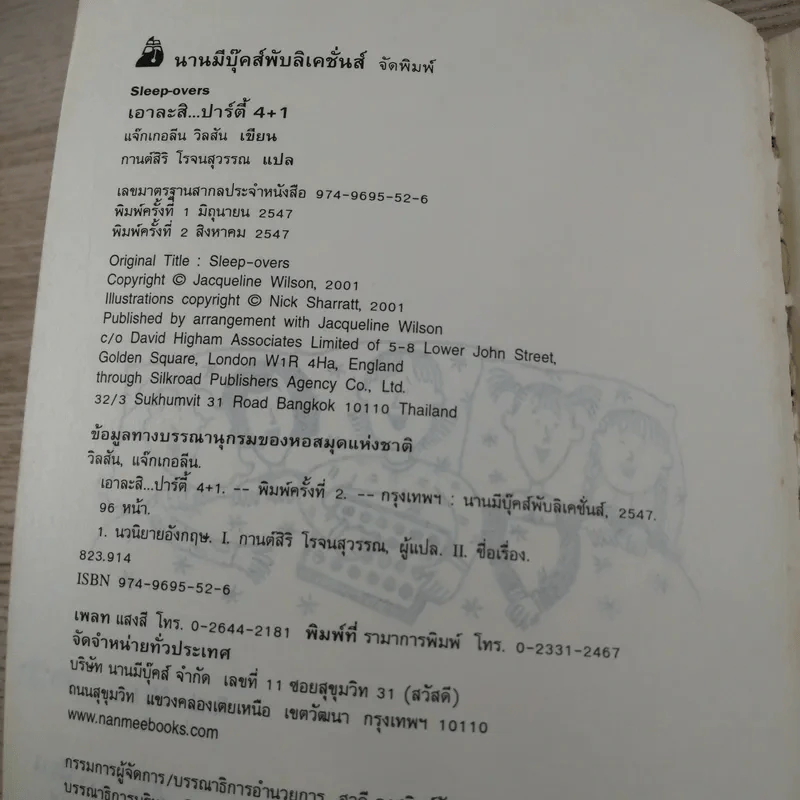 นานมีบุ๊คส์พับลิเคชั่นส์ จัดพิมพ์
Sleep-overs
เอาละสิ...ปาร์ตี้ 4+1
แจ๊กเกอลีน วิลสัน เขียน
กานต์สิริ โรจนสุวรรณ แปล
เลขมาตรฐานสากลประจำหนังสือ 974-9695-52-6
พิมพ์ครั้งที่ 1 มิถุนายน 2547
พิมพ์ครั้งที่ 2 สิงหาคม 2547
Original Title : Sleep-overs
Copyright © Jacqueline Wilson, 2001
Illustrations copyright © Nick Sharratt, 2001
Published by arrangement with Jacqueline Wilson
c/o David Higham Associates Limited of 5-8 Lower John Street,
Golden Square, London W1R 4Ha, England
through Silkroad Publishers Agency Co., Ltd.
32/3 Sukhumvit 31 Road Bangkok 10110 Thailand
ข้อมูลทางบรรณานุกรมของหอสมุดแห่งชาติ
วิลสัน, แจ๊กเกอลีน.
เอาละสิ...ปาร์ตี้ 4+1. -- พิมพ์ครั้งที่ 2. -- กรุงเทพฯ : นานมีบุ๊คส์พับลิเคชั่นส์, 2547.
96 หน้า.
1. นวนิยายอังกฤษ. I. กานต์สิริ โรจนสุวรรณ, ผู้แปล. II. ชื่อเรื่อง.
823.914
ISBN 974-9695-52-6
เพลท แสงสี โทร. 0-2644-2181 พิมพ์ที่ รามาการพิมพ์ โทร. 0-2331-2467
จัดจำหน่ายทั่วประเทศ
บริษัท นานมีบุ๊คส์ จำกัด เลขที่ 11 ซอยสุขุมวิท 31 (สวัสดี)
ถนนสุขุมวิท แขวงคลองเตยเหนือ เขตวัฒนา กรุงเทพฯ 10110
www.nanmeebooks.com
กรรมการผู้จัดการ/บรรณาธิการอำนวยการ